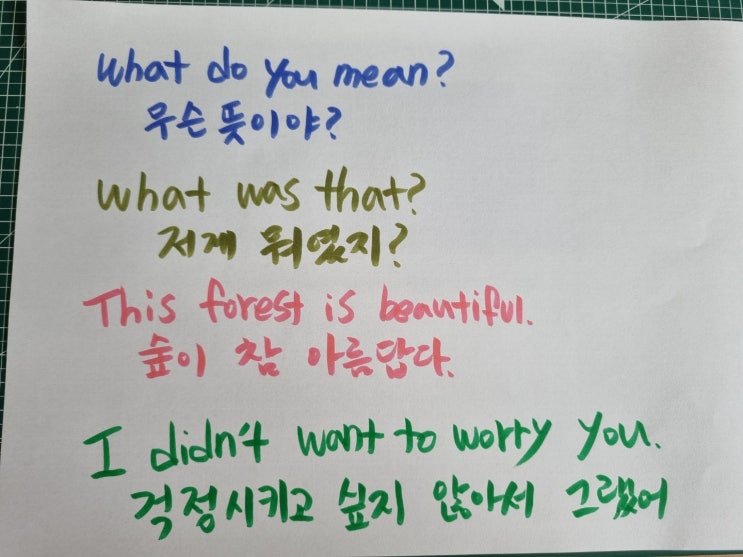 What do you mean?
무슨 뜻이야?
What was that?
저게 뭐였지?
This forest is beautiful.
숲이 참 아름답다.
I didn't want to worry you.
걱정시키고 싶지 않아서 그랬어